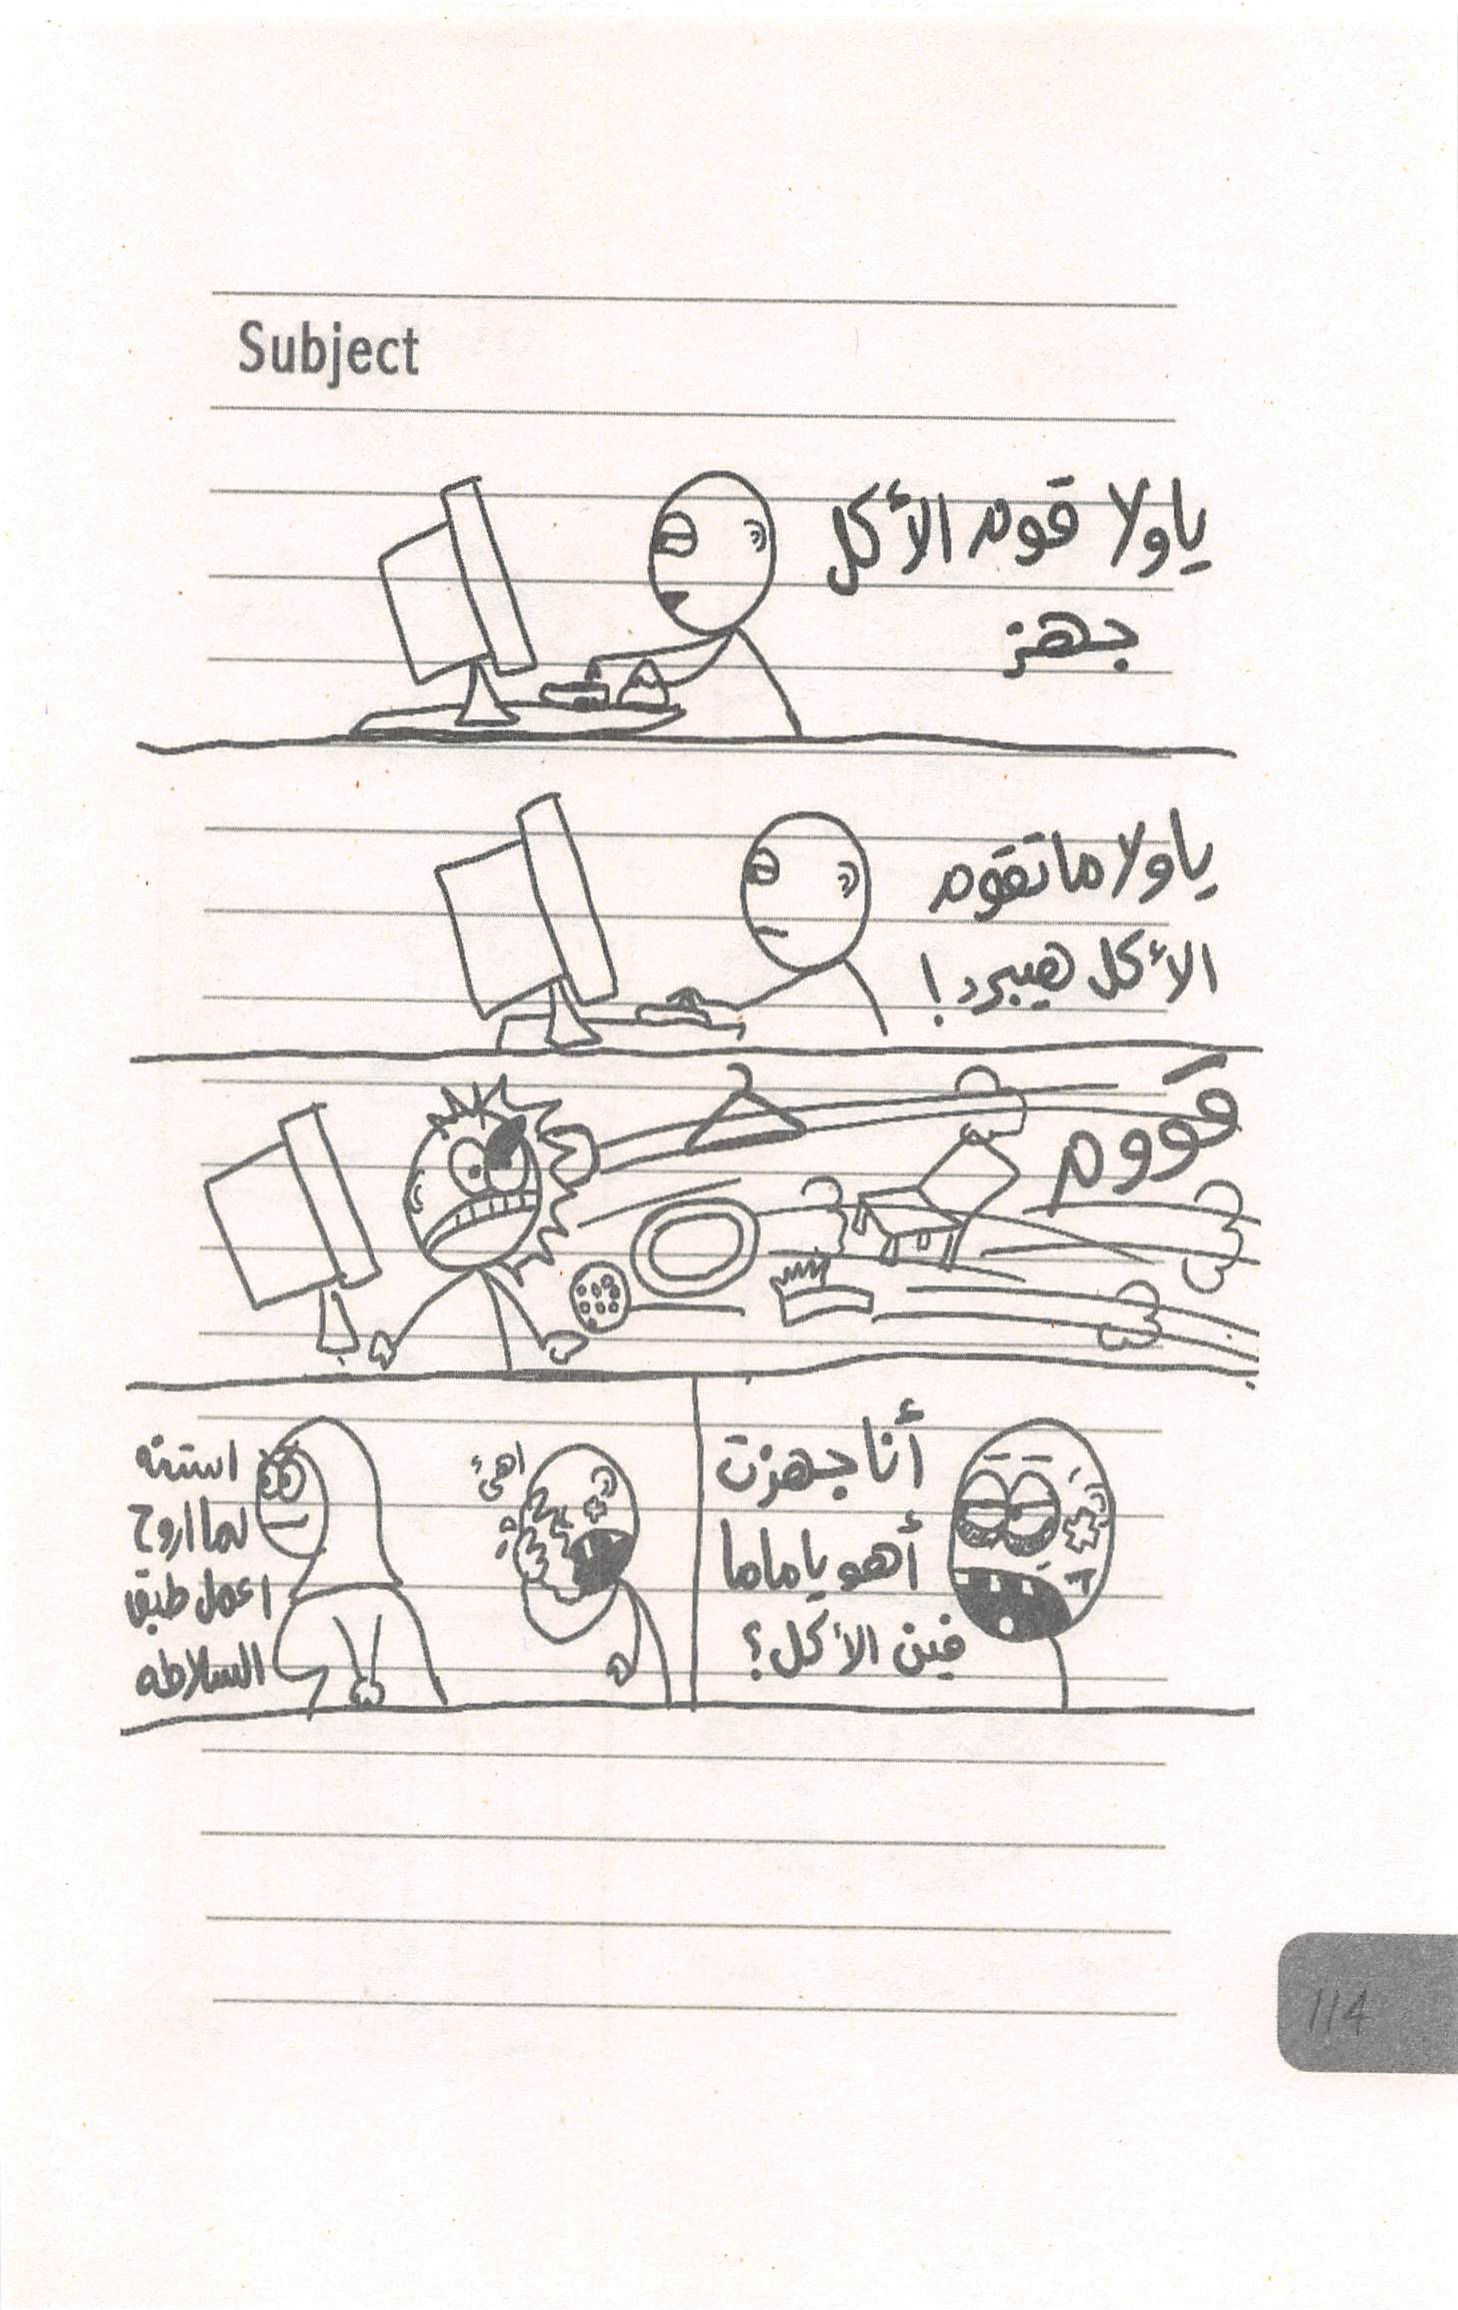 Subject
ياولا قوم الأكل
جهز
ياولا ماتقوم
الأكل هيبرد!
قووم
أنا جهزت
أهو ياماما
فين الأكل؟
اهئ
استنه
لما اروح
اعمل طبق
السلاطه
114